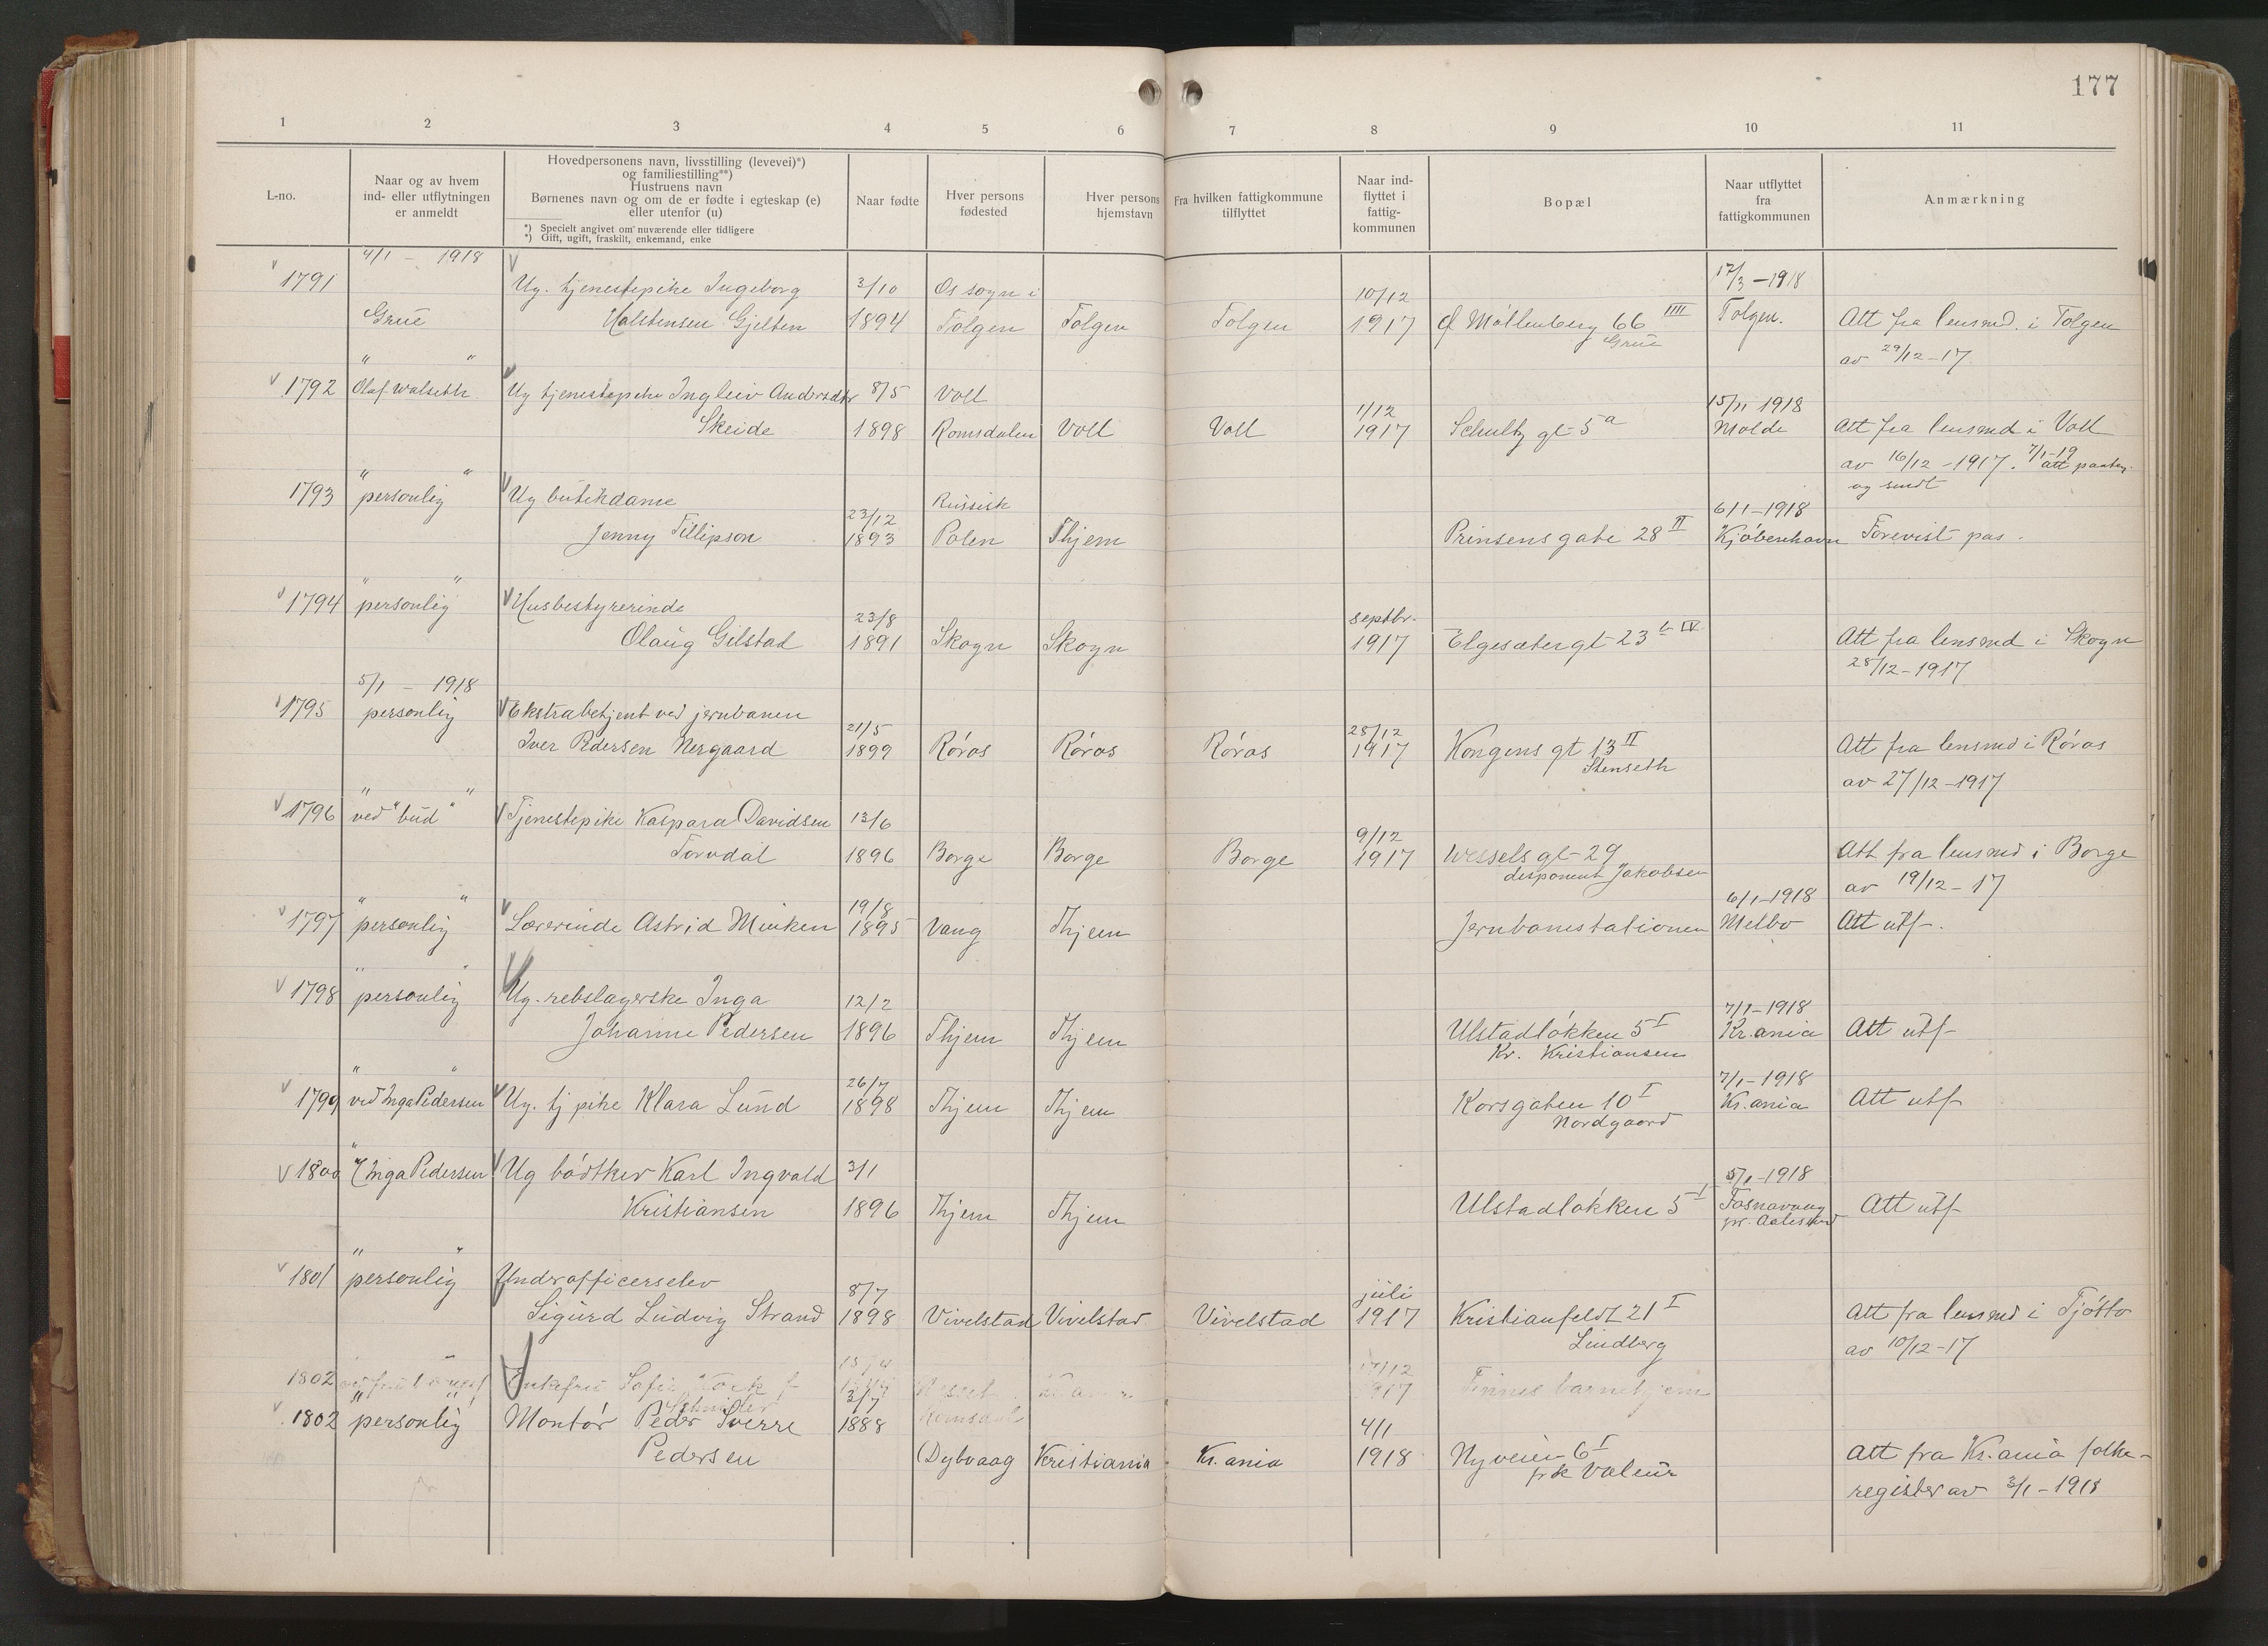 177
1 2 3 4 5 6 7 8 9 10 11
L-no.
Naar og av hvem
ind- eller utflytningen
er anmeldt
Hovedpersonens navn, livsstilling (levevei)*)
og familiestilling**)
Hustruens navn
Børnenes navn og om de er fødte i egteskap (e)
eller utenfor (u)
*) Specielt angivet om nuværende eller tidligere
*) Gift, ugift, fraskilt, enkemand, enke
Naar fødte
Hver persons
fødested
Hver persons
hjemstavn
Fra hvilken fattigkommune
tilflyttet
Naar ind-
flyttet i
fattig-
kommunen
Bopæl
Naar utflyttet
fra
fattigkommunen
Anmærkning
4/1 - 1918
1791 Ug. tjenestepike Ingeborg 3/10 Os sogn i 10/12 17/3 - 1918
Grue Halstensen Gjelten 1894 Tolgen Tolgen Tolgen 1917 Ø Møllenberg 66 IIII Tolgen. Att fra lensmd. i Tolgen
Grue av 29/12-17
" "
1792 Olaf Walseth Ug tjenestepike Ingleiv Andersdtr 8/5 Voll 1/12 15/11 1918
Skeide 1898 Romsdalen Voll Voll 1917 Schultz gt 5a Molde Att fra lensmd i Voll
av 16/12-1917. 7/1-19 att paateg.
og sendt
" "
1793 personlig Ug butikdame Russisk 6/1-1918
Jenny Fillipson 23/12 1893 Polen Thjem Prinsens gate 28 II Kjøbenhavn Forevist pas.
" "
1794 personlig Husbestyrerinde 23/8 septbr.
Olaug Gilstad 1891 Skogn Skogn 1917 Elgesætergt 23 b IV Att fra lensmd i Skogn
28/12-1917
5/1 - 1918
1795 personlig Ekstrabetjent ved jernbanen 21/5 28/12
Iver Pedersen Nergaard 1899 Røros Røros Røros 1917 Kongens gt 13 II Att fra lensmd i Røros
Stenseth av 27/12-1917
" "
1796 ved "bud" Tjenestepike Kaspara Davidsen 13/6 9/12
Torvdal 1896 Borge Borge Borge 1917 Wessels gt 29 Att fra lensmd i Borge
disponent Jakobsen av 19/12-17
" " 19/8 6/1-1918
1797 personlig Lærerinde Astrid Minken 1895 Vang Thjem Jernbanestationen Melbo Att utf.
" "
1798 personlig Ug. rebslagerske Inga 12/2 7/1-1918
Johanne Pedersen 1896 Thjem Thjem Ulstadløkken 5 I Kr.ania Att utf
Kr. Kristiansen
" " 26/7 7/1-1918
1799 ved Inga Pedersen Ug. tj pike Klara Lund 1898 Thjem Thjem Korsgaten 10 I Kr.ania Att utf
Nordgaard
"
1800 Inga Pedersen Ug bødtker Karl Ingvald 3/1 5/1-1918
Kristiansen 1896 Thjem Thjem Ulstadløkken 5 I Fosnavaag Att utf
pr. Aalesund
" "
1801 personlig Underofficerselev 8/7 juli
Sigurd Ludvig Strand 1898 Vivelstad Vivelstad Vivelstad 1917 Kristianfeldt 21 I Att fra lensmd i Tjøtto
Lindberg av 10/12-17
1802 Enkefru Sofie 1917 Finnes barnehjem
" " 3/7
1802 personlig Montør Peder Sverre 1888 4/1
Pedersen Dybvaag Kristiania Kr.ania 1918 Nyveien 6 I Att fra Kr.ania folke-
frk Valeur register av 3/1-1918